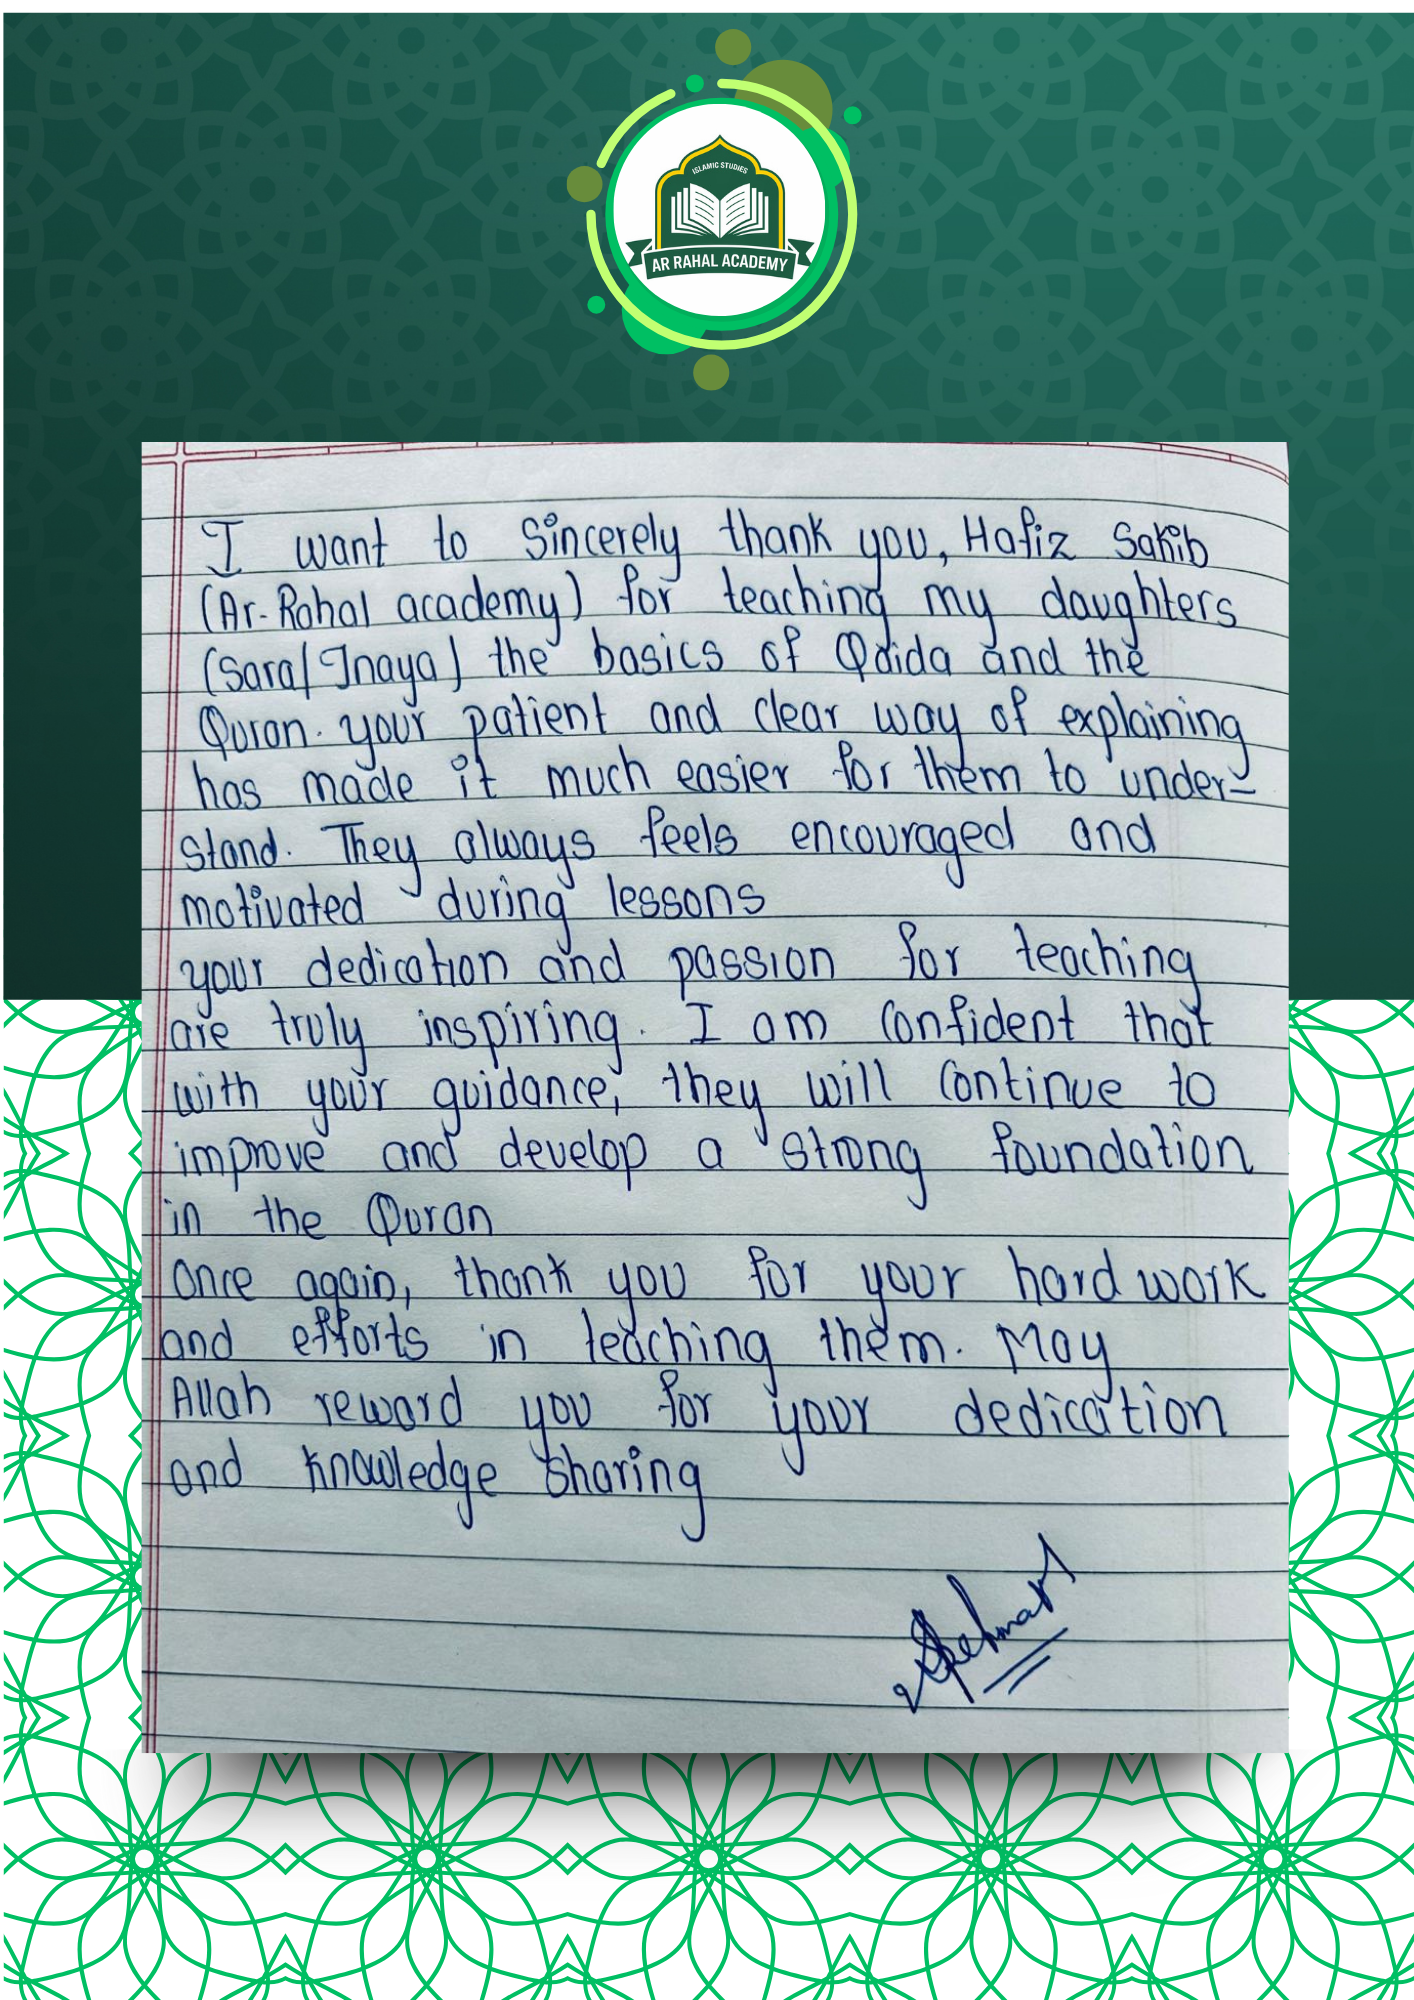 ISLAMIC STUDIES
AR RAHAL ACADEMY
I want to Sincerely thank you, Hafiz Sakib
(Ar-Rahal academy) for teaching my daughters
(Sara/Inaya) the basics of Qaida and the
Quran. your patient and clear way of explaining
has made it much easier for them to under-
stand. They always feels encouraged and
motivated during lessons
your dedication and passion for teaching
are truly inspiring. I am Confident that
with your guidance, they will Continue to
improve and develop a strong foundation
in the Quran
Once again, thank you for your hard work
and efforts in teaching them. May
Allah reward you for your dedication
and knowledge sharing